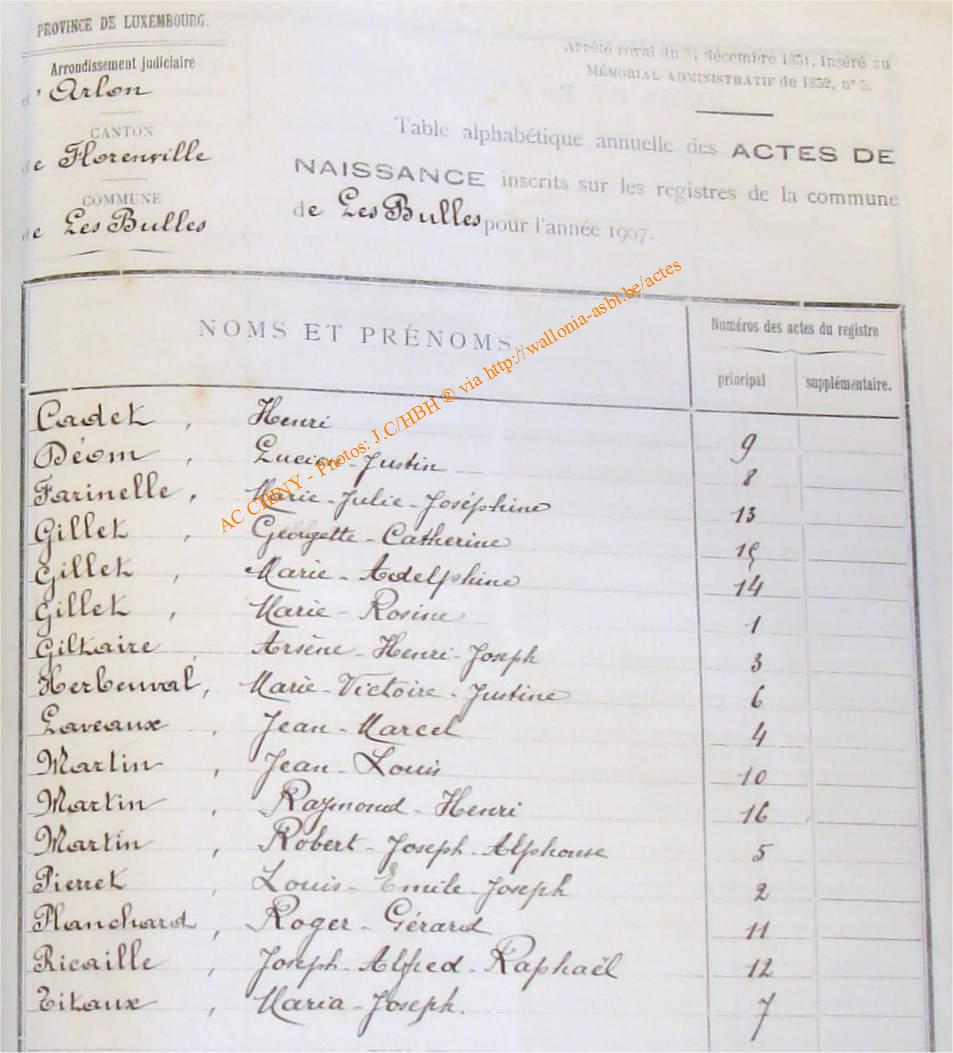 PROVINCE DE LUXEMBOURG.
Arrondissement judiciaire
d'Arlon
CANTON
de Florenville
COMMUNE
de Les Bulles
Arrêté royal du 31 décembre 1851, inséré au
MÉMORIAL ADMINISTRATIF de 1852, n° 5.
Table alphabétique annuelle des ACTES DE
NAISSANCE inscrits sur les registres de la commune
de Les Bulles pour l'année 1907.
NOMS ET PRÉNOMS.
Numéros des actes du registre
principal supplémentaire.
Cadet, Henri 9
Déom, Lucien-Justin 8
Farinelle, Marie-Julie-Joséphine 13
Gillet, Georgette-Catherine 15
Gillet, Marie-Adelphine 14
Gillet, Marie-Rosine 1
Giltaire, Arsène-Henri-Joseph 3
Herbeuval, Marie-Victoire-Justine 6
Laveaux, Jean-Marcel 4
Martin, Jean-Louis 10
Martin, Raymond-Henri 16
Martin, Robert-Joseph-Alphonse 5
Pierret, Louis-Emile-Joseph 2
Planchard, Roger-Gérard 11
Ricaille, Joseph-Alfred-Raphaël 12
Titaux, Maria-Joseph. 7
AC CHINY - Photos: J.C/HBH ® via http://wallonia-asbl.be/actes